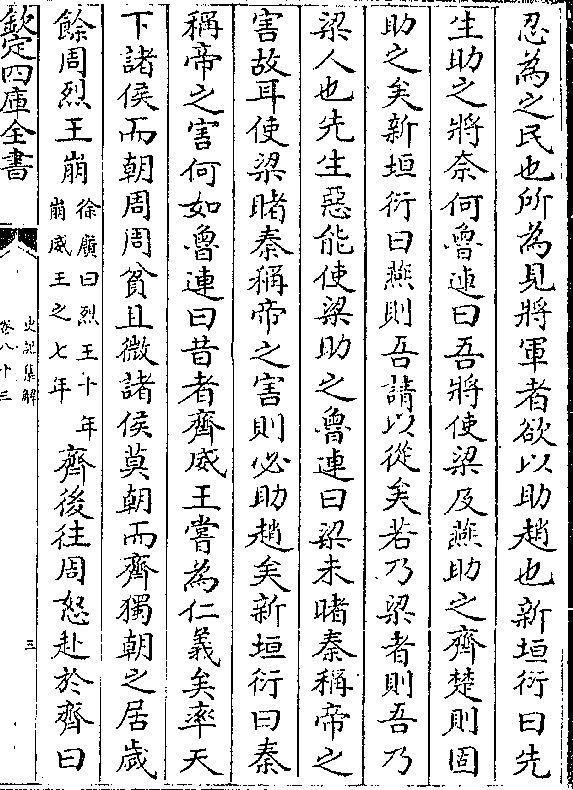 忍為之民也所為見將軍者欲以助趙也新垣衍曰先
生助之將奈何魯連曰吾將使梁及燕助之齊楚則固
助之矣新垣衍曰燕則吾請以從矣若乃梁者則吾乃
梁人也先生惡能使梁助之魯連曰梁未睹秦稱帝之
害故耳使梁睹秦稱帝之害則必助趙矣新垣衍曰秦
稱帝之害何如魯連曰昔者齊威王嘗為仁義矣率天
下諸侯而朝周周貧且微諸侯莫朝而齊獨朝之居歲
餘周烈王崩徐廣曰烈王十年崩威王之七年齊後往周怒赴於齊曰
欽定四庫全書
史記集解
卷八十三
三